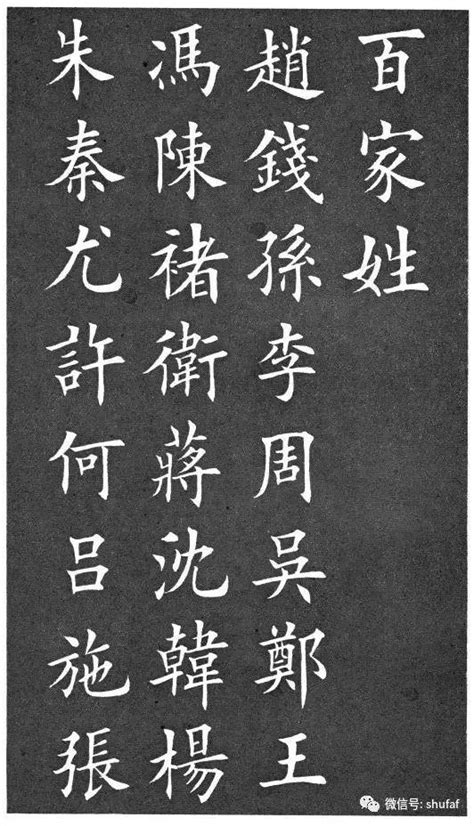 百家姓
趙錢孫李周吳鄭王
馮陳褚衛蔣沈韓楊
朱秦尤許何呂施張
微信号: shufaf